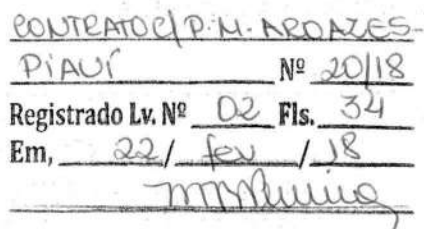 CONTRATO C/ P.M. AROAZES-
PIAUÍ Nº 20/18
Registrado Lv. Nº 02 Fls. 34
Em, 22 / fev / 18